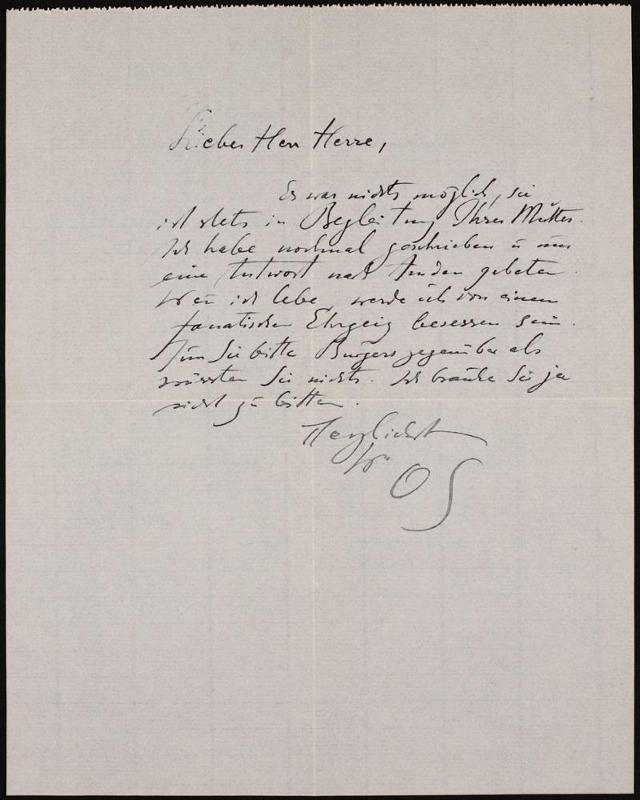 Lieber Herr Herre,
Es war nichts möglich, sie
ist stets in Begleitung Ihrer Mutter.
Ich habe nochmal geschrieben u um
eine Antwort nach gebeten.
Wenn ich lebe, werde ich von einem
fanatischen Ehrgeiz besessen sein.
Tun Sie bitte Burgers gegenüber als
wüssten Sie nichts. Ich brauche Sie ja
nicht zu bitten.
Herzlichst
Ihr
OS